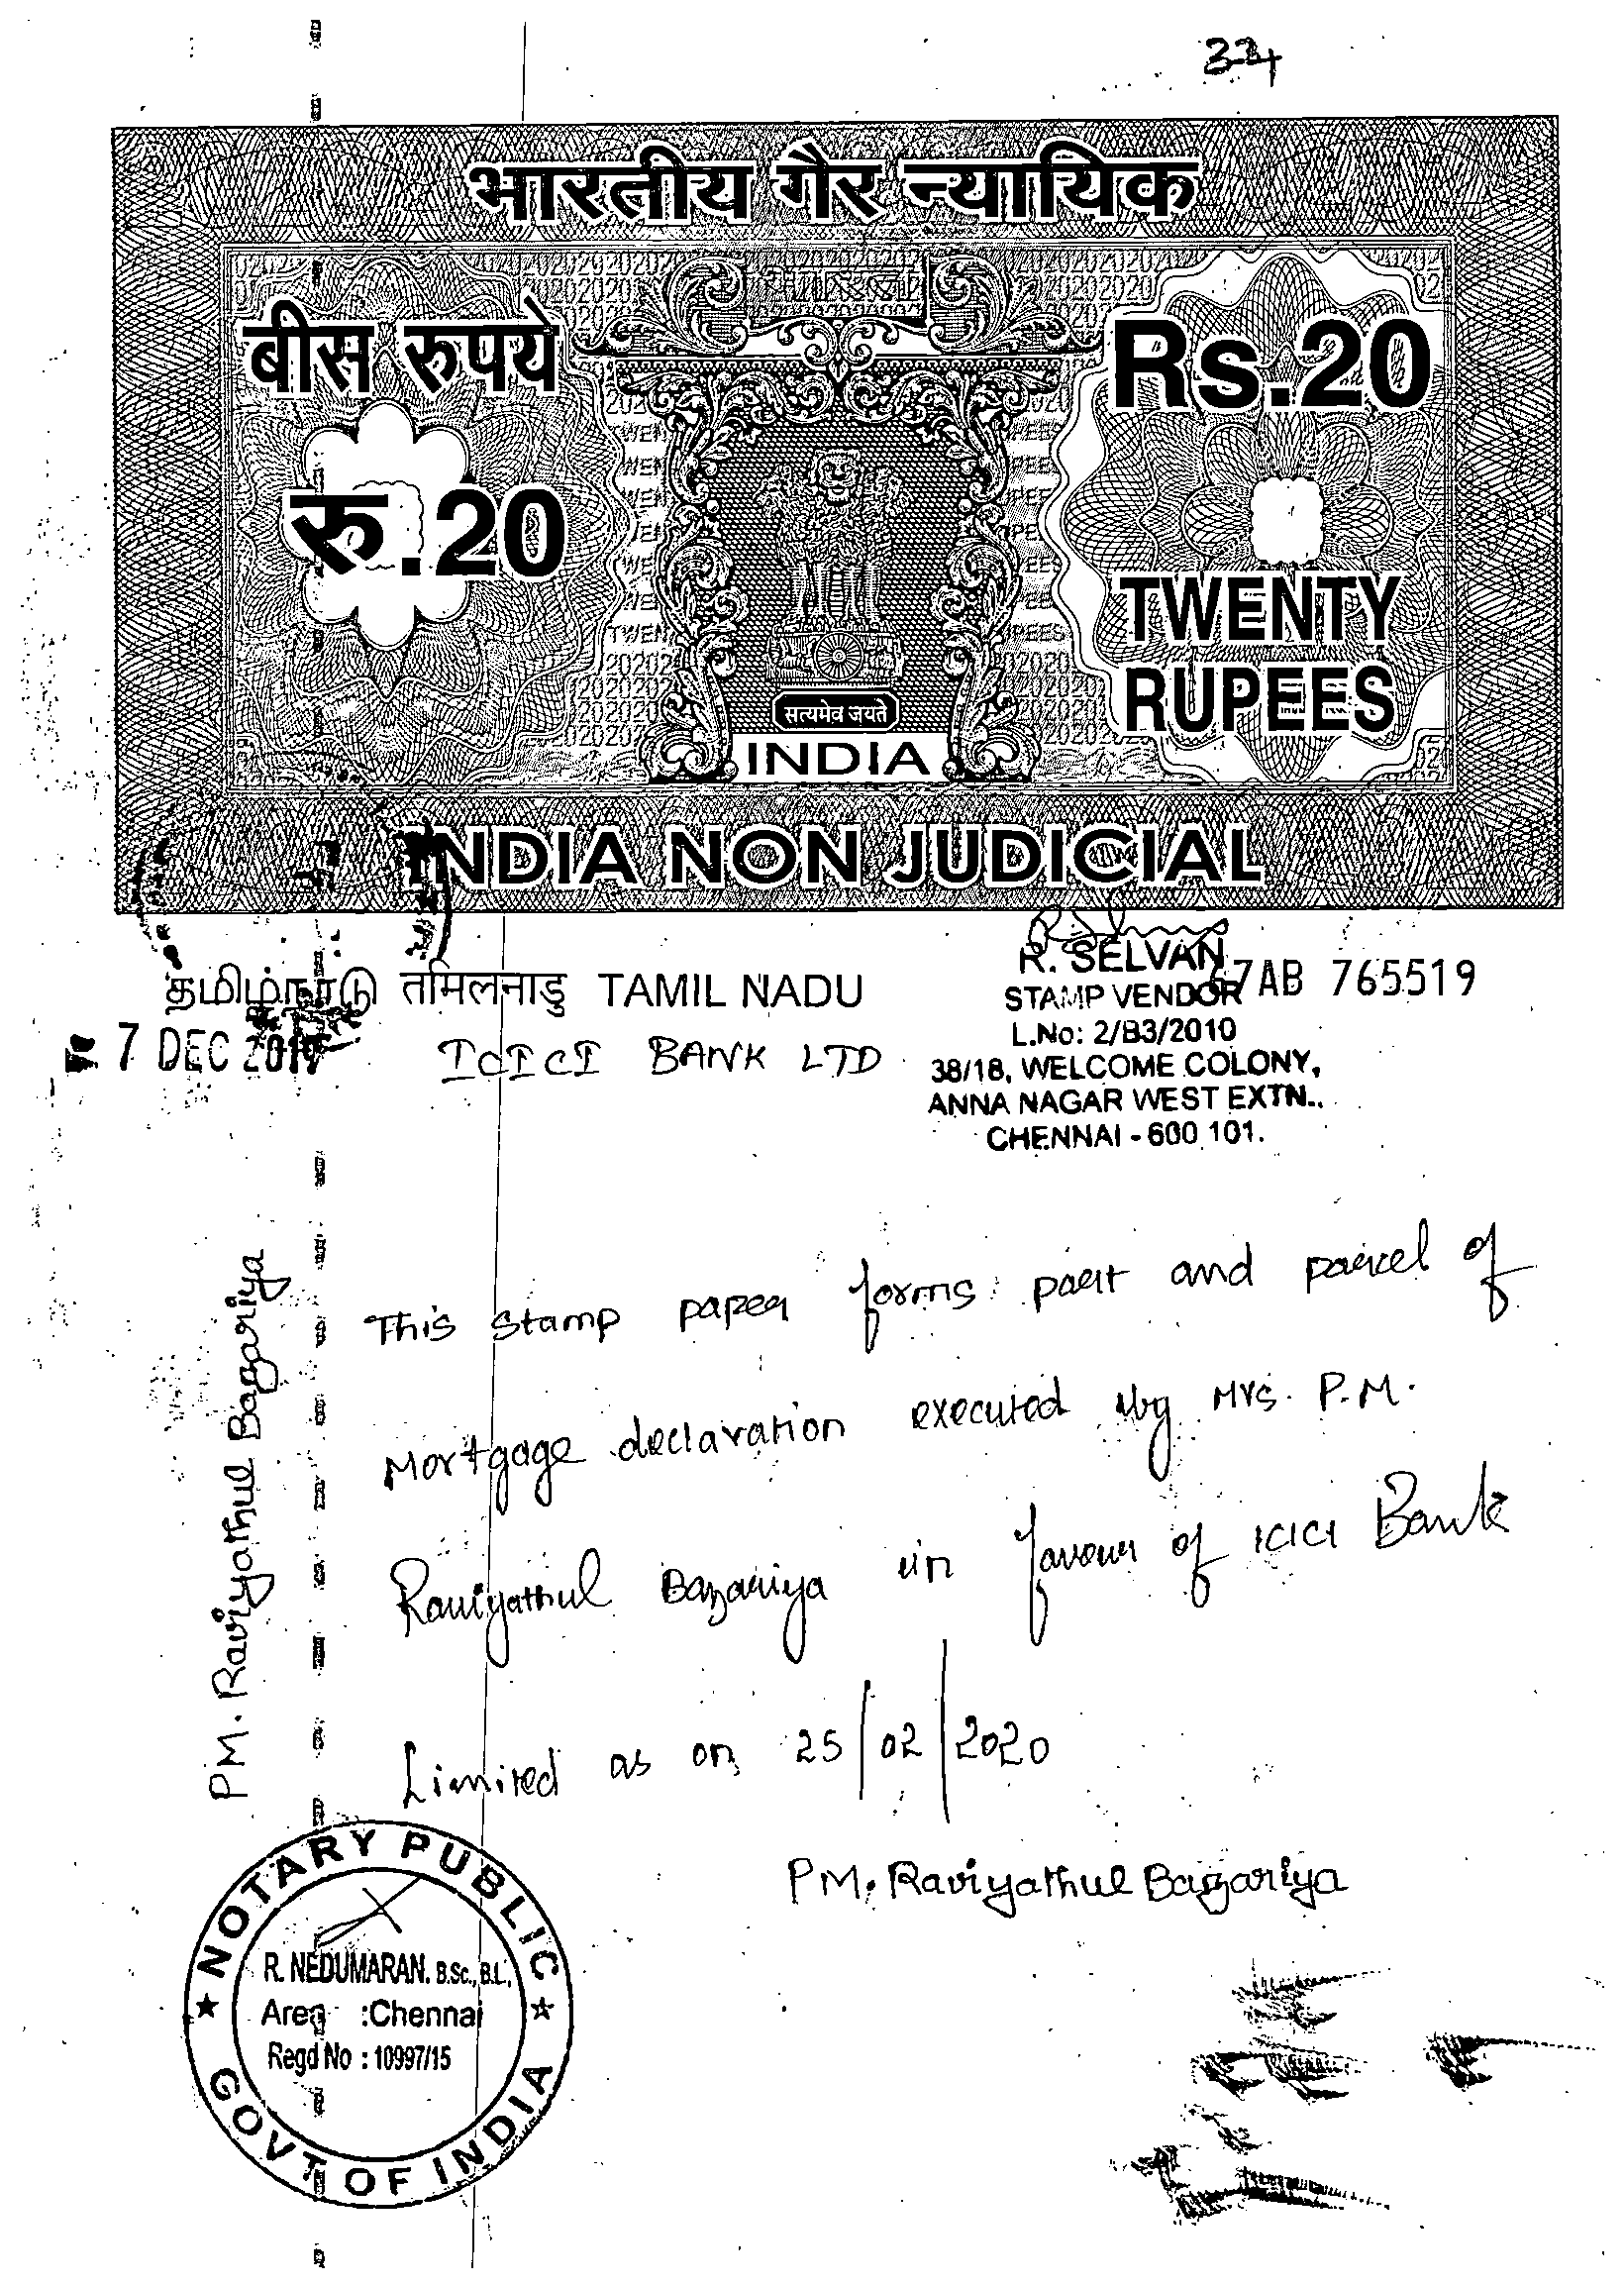 भारतीय गैर न्यायिक
बीस रुपये
Rs.20
रु.20
TWENTY
RUPEES
सत्यमेव जयते
INDIA
INDIA NON JUDICIAL
தமிழ்நாடு तमिलनाडु TAMIL NADU
67AB 765519
R. SELVAN
STAMP VENDOR
L.No: 2/B3/2010
38/18, WELCOME COLONY,
ANNA NAGAR WEST EXTN..
CHENNAI - 600 101.
7 DEC 2019
ICICI BANK LTD
This stamp paper forms part and parcel of
Mortgage declaration executed by Mrs. P.M.
Raviyathul Bazariya in favour of ICICI Bank
Limited as on 25/02/2020
PM. Raviyathul Bazariya
PM. Raviyathul Bazariya
NOTARY PUBLIC
R. NEDUMARAN. B.Sc., B.L.,
Area :Chennai
Regd No : 10997/15
GOVT OF INDIA